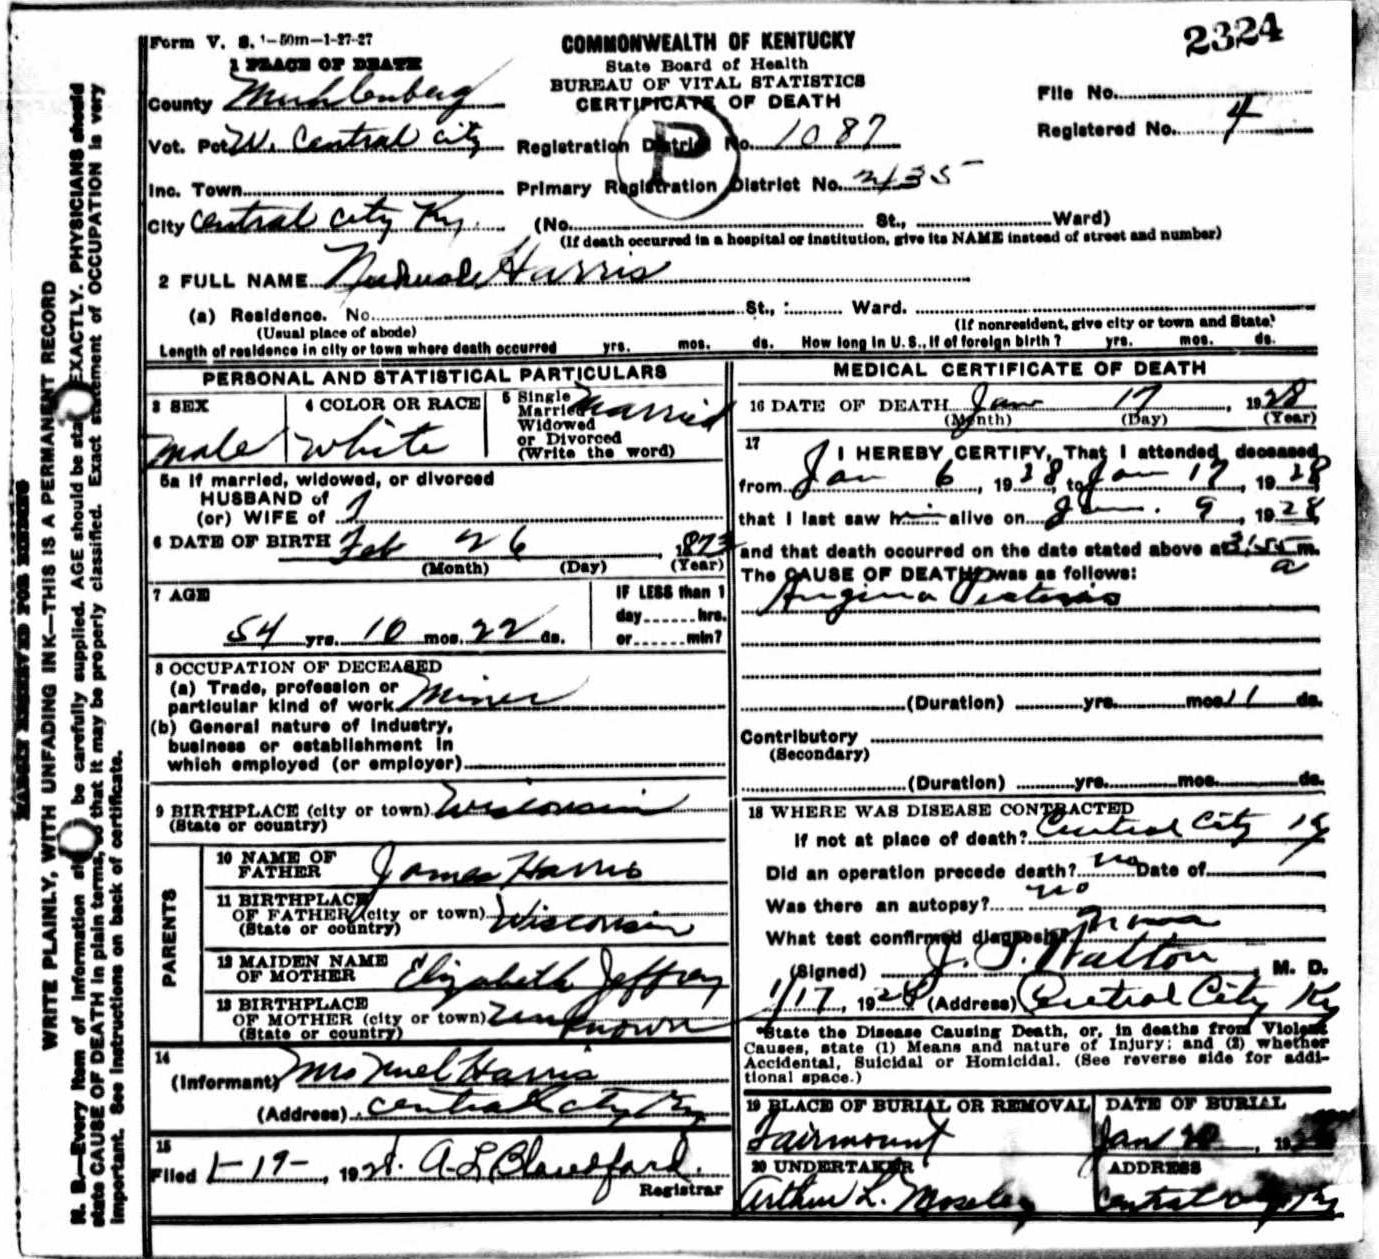 2324
Form V. S. 1-50m-1-27-27
COMMONWEALTH OF KENTUCKY
State Board of Health
BUREAU OF VITAL STATISTICS
CERTIFICATE OF DEATH
1 PLACE OF DEATH
County Muhlenberg
File No.
Registered No. 4
Vot. Pct W. Central City
Registration District No. 1087
P
Inc. Town
Primary Registration District No. 2435
City Central City Ky.
(No. St., Ward)
(If death occurred in a hospital or institution, give its NAME instead of street and number)
2 FULL NAME Harris
(a) Residence. No. St., Ward.
(Usual place of abode)
(If nonresident, give city or town and State)
Length of residence in city or town where death occurred yrs. mos. ds. How long in U. S., if of foreign birth? yrs. mos. ds.
PERSONAL AND STATISTICAL PARTICULARS
3 SEX
Male
4 COLOR OR RACE
White
5 Single
Married
Widowed
or Divorced
(Write the word)
Married
5a If married, widowed, or divorced
HUSBAND of
(or) WIFE of
6 DATE OF BIRTH Feb 26, 1873
(Month) (Day) (Year)
7 AGE
54 yrs. 10 mos. 22 ds.
IF LESS than 1
day hrs.
or min?
8 OCCUPATION OF DECEASED
(a) Trade, profession or
particular kind of work Miner
(b) General nature of industry,
business or establishment in
which employed (or employer)
9 BIRTHPLACE (city or town) Wisconsin
(State or country)
PARENTS
10 NAME OF
FATHER James Harris
11 BIRTHPLACE
OF FATHER (city or town) Wisconsin
(State or country)
12 MAIDEN NAME
OF MOTHER Elizabeth Jeffrey
13 BIRTHPLACE
OF MOTHER (city or town) Unknown
(State or country)
14
(Informant) Mrs Harris
(Address) Central City Ky
15
Filed 1-19-, 1928. A. L. Blandford.
Registrar
MEDICAL CERTIFICATE OF DEATH
16 DATE OF DEATH Jan 17, 1928
(Month) (Day) (Year)
17
I HEREBY CERTIFY, That I attended deceased
from Jan 6, 1928, to Jan 17, 1928,
that I last saw him alive on Jan. 9, 1928,
and that death occurred on the date stated above at 3:55 a m.
The CAUSE OF DEATH was as follows:
Angina Pectoris
(Duration) yrs. mos. 11 ds.
Contributory
(Secondary)
(Duration) yrs. mos. ds.
18 WHERE WAS DISEASE CONTRACTED
If not at place of death? Central City Ky
Did an operation precede death? no Date of
Was there an autopsy? no
What test confirmed diagnosis?
(Signed) J. T. Walton, M. D.
1/17, 1928 (Address) Central City Ky
*State the Disease Causing Death, or, in deaths from Violent
Causes, state (1) Means and nature of Injury; and (2) whether
Accidental, Suicidal or Homicidal. (See reverse side for addi-
tional space.)
19 PLACE OF BURIAL OR REMOVAL
Fairmount
DATE OF BURIAL
Jan 20, 19
20 UNDERTAKER
Arthur L. Moseley
ADDRESS
Central City Ky
MARGIN RESERVED FOR BINDING
WRITE PLAINLY, WITH UNFADING INK—THIS IS A PERMANENT RECORD
N. B.—Every item of information should be carefully supplied. AGE should be stated EXACTLY. PHYSICIANS should
state CAUSE OF DEATH in plain terms, so that it may be properly classified. Exact statement of OCCUPATION is very
important. See instructions on back of certificate.